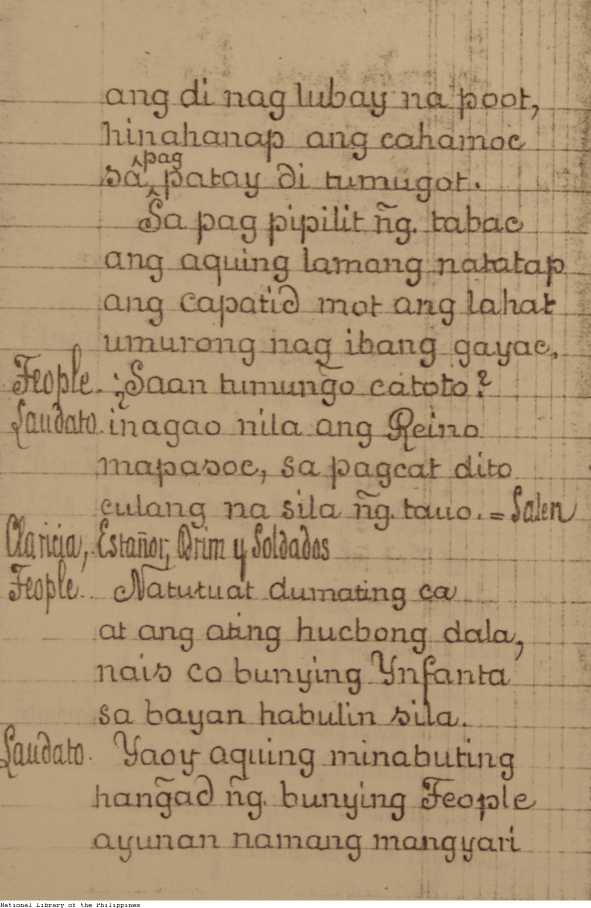 ang di nag lubay na poot,
hinahanap ang cahamoc
sa pagpatay di tumugot.
Sa pag pipilit ñg. tabac
ang aquing lamang natatap
ang capatid mot ang lahat
umurong nag ibang gayac,
Feople. ¿Saan tumung̃o catoto?
Laudato. inagao nila ang Reino
mapasoc, sa pagcat dito
culang na sila ñg. tauo. = Salen
Claricia, Estañor, Qrim y Soldados
Feople. Natutuat dumating ca
at ang ating hucbong dala,
nais co bunying Ynfanta
sa bayan habulin sila.
Laudato. Yaoy aquing minabuting
hang̃ad ñg. bunying Feople
ayunan namang mangyari
National Library of the Philippines